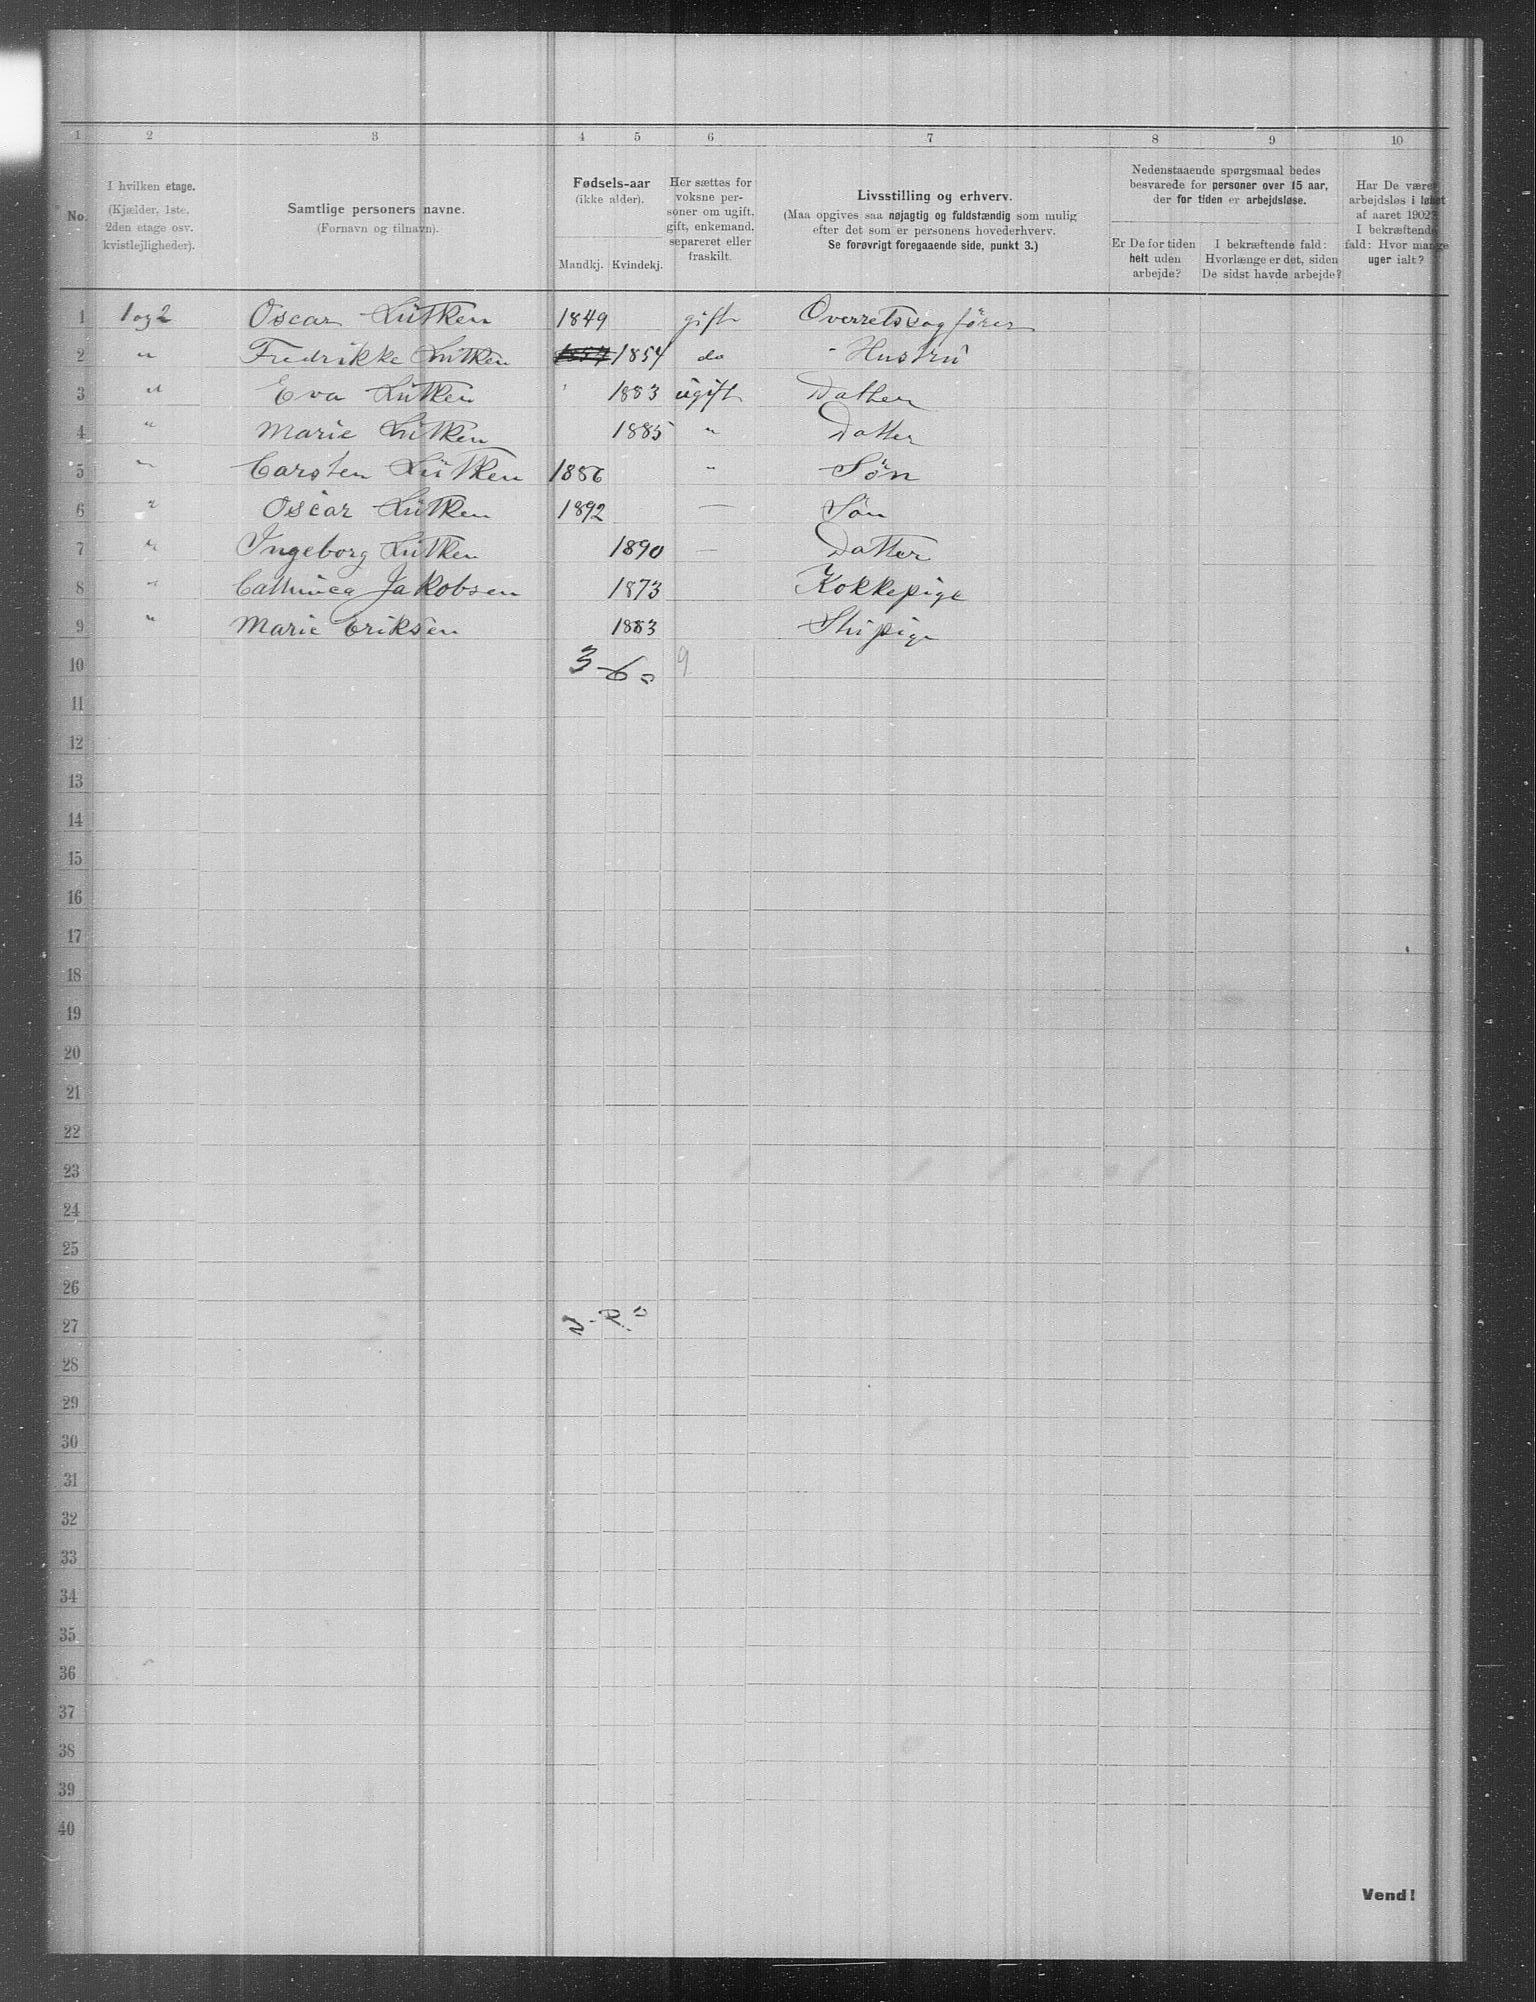 1 2 3 4 5 6 7 8 9 10
No.
I hvilken etage.
(Kjælder, 1ste,
2den etage osv.
kvistlejligheder).
Samtlige personers navne.
(Fornavn og tilnavn).
Fødsels-aar
(ikke alder).
Mandkj. Kvindekj.
Her sættes for
voksne per-
soner om ugift,
gift, enkemand,
separeret eller
fraskilt.
Livsstilling og erhverv.
(Maa opgives saa nøjagtig og fuldstændig som mulig
efter det som er personens hovederhverv.
Se forøvrigt foregaaende side, punkt 3.)
Nedenstaaende spørgsmaal bedes
besvarede for personer over 15 aar,
der for tiden er arbejdsløse.
Er De for tiden
helt uden
arbejde?
I bekræftende fald:
Hvorlænge er det, siden
De sidst havde arbejde?
Har De være
arbejdsløs i løbet
af aaret 1902?
I bekræftende
fald: Hvor mange
uger ialt?
1 1 og 2 Oscar Lütken 1849 gift Overretssagfører
2 " Fredrikke Lütken 1854 do Hustru
3 " Eva Lütken 1883 ugift Datter
4 " Marie Lütken 1885 " Datter
5 " Carsten Lütken 1886 " Søn
6 " Oscar Lütken 1892 — Søn
7 " Ingeborg Lütken 1890 — Datter
8 " Cathinca Jakobsen 1873 Kokkepige
9 " Marie Eriksen 1883 Stupige
10 3-6 9
11
12
13
14
15
16
17
18
19
20
21
22
23
24
25
26
27
28
29
30
31
32
33
34
35
36
37
38
39
40
Vend!